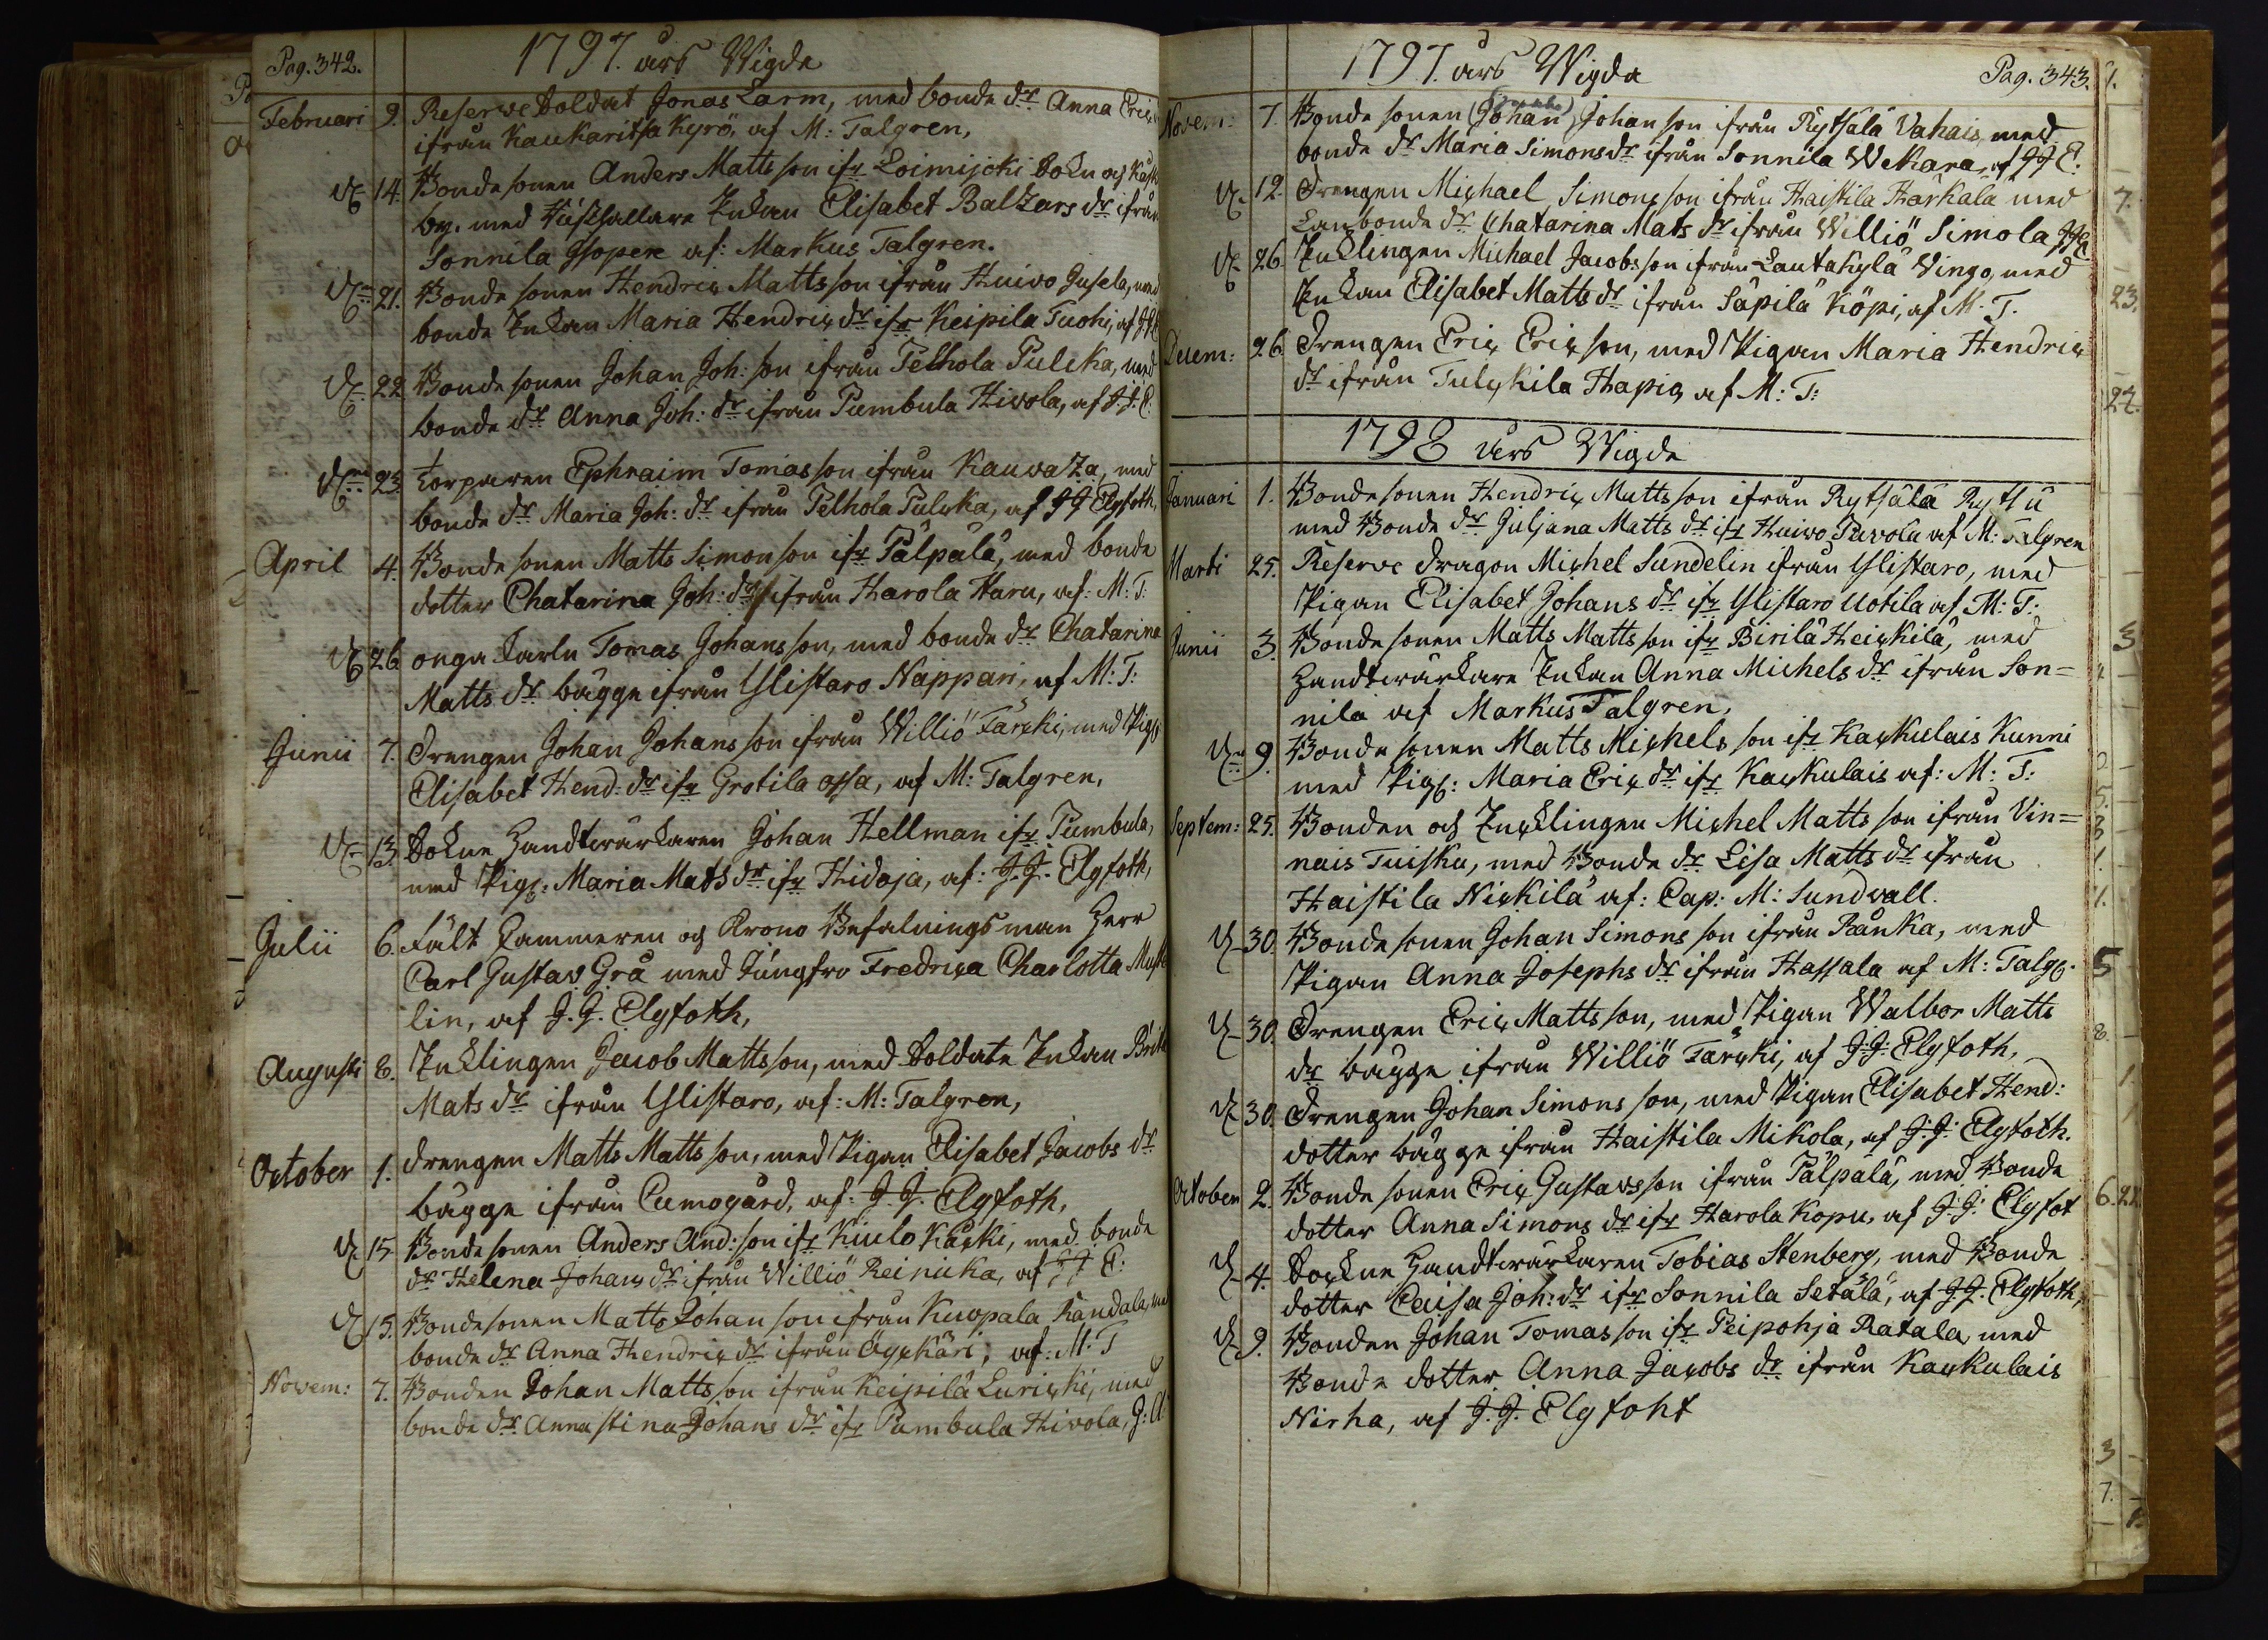 Pag. 342.
1797. års Wigde
Februari 9. Reserve Soldat Jonas Larm, med bonde dr Anna Eric
ifrån Kaukaritsa Kyrö, af M: Talgren,
14. Bonde sonen Anders Matts son ifr Loimijoki Sokn och
by. med Elisabet Baltzars dr ifrån
Sonnila af: Markus Talgren.
21. Bonde sonen Hendric Matts son ifrån Huivo Jusela, med
bonde Enkan Maria Hendrix dr ifr Keipila Tuohi, af
22. Bonde sonen Johan Joh: son ifrån Pelhola Pulcka, med
bonde dr Anna Joh: dr ifrån Pumbula Hivola, af J. J. E.
23. torparen Ephraim Tomas son ifrån Kauvatza, med
bonde dr Maria Joh: dr ifrån Pelhola Pulcka, af J J Elgfoth,
April 4. Bonde sonen Matts Simonson ifr Pälpälä, med bonde
dotter Chatarina Joh: dr ifrån Harola Haru, af: M: T:
26 unga Karln Tomas Johans son, med bonde dr Chatarina
Matts dr bägge ifrån Ylistaro Nappari, af M: T:
Junii 7. Drengen Johan Johans son ifrån Williö Tärcki, med Pig:
Elisabet Hend: dr ifr Grotila ossa, af M: Talgren,
13. Sokne Handtvärkaren Johan Hellman ifr Pumbula,
med Pig: Maria Mats dr ifr Hidoja, af: J. J. Elgfoth,
Julii 6. Fält Kammeren och Krono Befalnings man Herr
Carl Gustav Grå med Jungfru Fredrica Charlotta
lin, af J. J. Elgfoth,
Augusti 8. Enklingen Jacob Matts son, med Soldate Enkan Brit
Mats dr ifrån Ylistaro, af: M: Talgren,
October 1. drengen Matts Matts son, med Pigan Elisabet Jacobs dr
bägge ifrån Cumogård, af: J. J. Elgfoth,
15. Bonde sonen Anders And: son ifr Kiulo Käcki, med bonde
dr Helena Johans dr ifrån Williö Reinika, af J J E:
15. Bonde sonen Matts Johan son ifrån Kuopala Randala, med
bonde dr Anna Hendrix dr ifrån Äyskäri, af: M. T
Novem: 7. Bonden Johan Matts son ifrån Keipilä Luricki, med
bonde dr Annastina Johans dr ifr Pumbula Hivola,
1797. års Wigda
Pag. 343.
Novem: 7. Bonde sonen (Johan) Johan son ifrån Rytsälä Vahais, med
bonde dr Maria Simons dr ifrån Sonnila Wekara, af J J E:
12. Drengen Michael Simons son ifrån Haistila Härkälä med
Lanbonde dr Chatarina Mats dr ifrån Williö Simola J J E
26. Enklingen Michael Jacobs son ifrån Lautakylä Vingo, med
Enkan Elisabet Matts dr ifrån Säpilä Köpi, af M. T.
Decem: 26. Drengen Eric Eric son, med Pigan Maria Hendrix
dr ifrån Tulckila Hapio, af M: T:
1798 års Wigde
Januari 1. Bonde sonen Hendric Matts son ifrån Rytsälä Rytsü
med Bonde dr Juljana Matts dr ifr Huivo Pavola af M: Talgren
Marti 25. Reserve dragon Michel Sundelin ifrån Ylistaro, med
Pigan Elisabet Johans dr ifr Ylistaro Uotila af M: T:
Junii 3. Bonde sonen Matts Matts son ifr Birilä Heickilä, med
Handtvärkare Enkan Anna Michels dr ifrån Son=
nila af Markus Talgren,
9. Bonde sonen Matts Michels son ifr Kackulais Kunni
med Pig: Maria Eric dr ifr Kackulais af: M: T:
Septem: 25. Bonden och Encklingen Michel Matts son ifrån Vin=
nais Tuisku, med Bonde dr Lisa Matts dr ifrån
Haistila Nickilä af: Cap: M: Sundvall.
30. Bonde sonen Johan Simons son ifrån Ränka, med
Pigan Anna Josephs dr ifrån Hassala af M: Talg:
30. Drengen Eric Matts son, med Pigan Walbor Matts
dr bägge ifrån Williö Tärcki, af J. J. Elgfoth,
30. Drengen Johan Simons son, med Pigan Elisabet Hend:
dotter bägge ifrån Haistila Mikola, af J. J. Elgfoth.
October 2. Bonde sonen Eric Gustavs son ifrån Pälpälä, med Bonde
dotter Anna Simons dr ifr Harola Kopu, af J. J. Elgfot
4. Sockne Handtvärkaren Tobias Stenberg, med Bonde
dotter Caisa Joh: dr ifr Sonnila Setälä, af J. J. Elgfoth,
9. Bonden Johan Tomas son ifr Peipohja Ratala, med
Bonde dotter Anna Jacobs dr ifrån Kackulais
Nirha, af J. J. Elgfoht